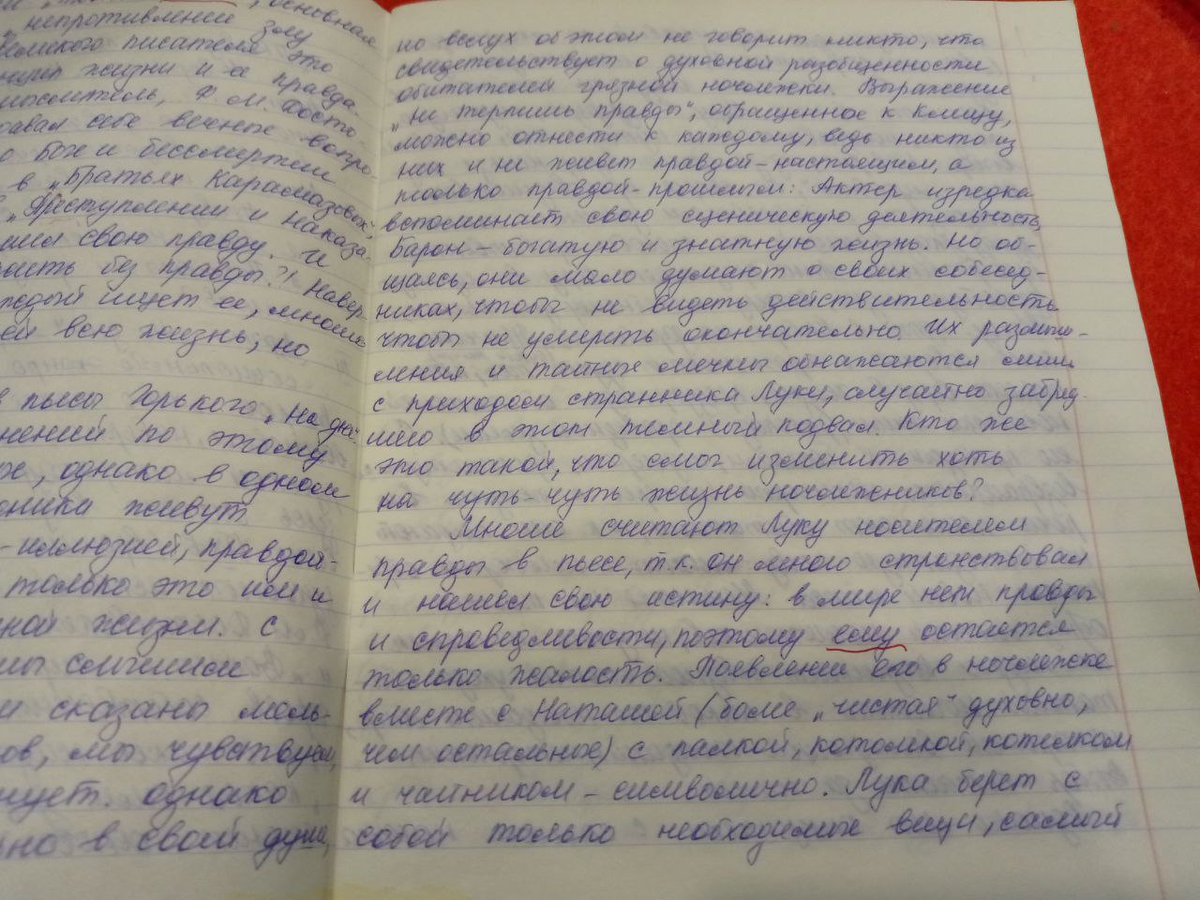 , основная
непротивление злу
великого писателя это
жизни и ее правда.
мыслитель, Ф. М. Досто-
давал себе вечные вопро-
о Боге и бессмертии
в „Братьях Карамазовых",
„Преступлении и наказа-
свою правду. И
жить без правды?! Навер
каждый ищет ее, многие
всю жизнь, но
пьесы Горького „На дне".
по этому
, однако в одном
живут
-иллюзией, правдой-
только это им и
жизни. С
мы слышим
и сказаны моль-
, мы чувствуем,
. однако
в своей душе,
но вслух об этом не говорит никто, что
свидетельствует о духовной разобщенности
обитателей грязной ночлежки. Выражение
„не терпишь правды", обращенное к Клещу,
можно отнести к каждому, ведь никто из
них и не живет правдой-настоящим, а
только правдой-прошлым: Актер изредка
вспоминает свою сценическую деятельность,
Барон – богатую и знатную жизнь. Но об-
щаясь, они мало думают о своих собесед-
никах, чтобы не видеть действительность
чтобы не умереть окончательно. Их размыш-
ления и тайные мечты обнажаются лишь
с приходом странника Луки, случайно забред-
шего в этот темный подвал. Кто же
это такой, что смог изменить хоть
на чуть-чуть жизнь ночлежников?
Многие считают Луку носителем
правды в пьесе, т.к. он много странствовал
и нашел свою истину: в мире нет правды
и справедливости, поэтому ему остается
только жалость. Появление его в ночлежке
вместе с Наташей (более „чистая" духовно,
чем остальные) с палкой, котомкой, котелком
и чайником – символично. Лука берет с
собой только необходимые вещи, самый